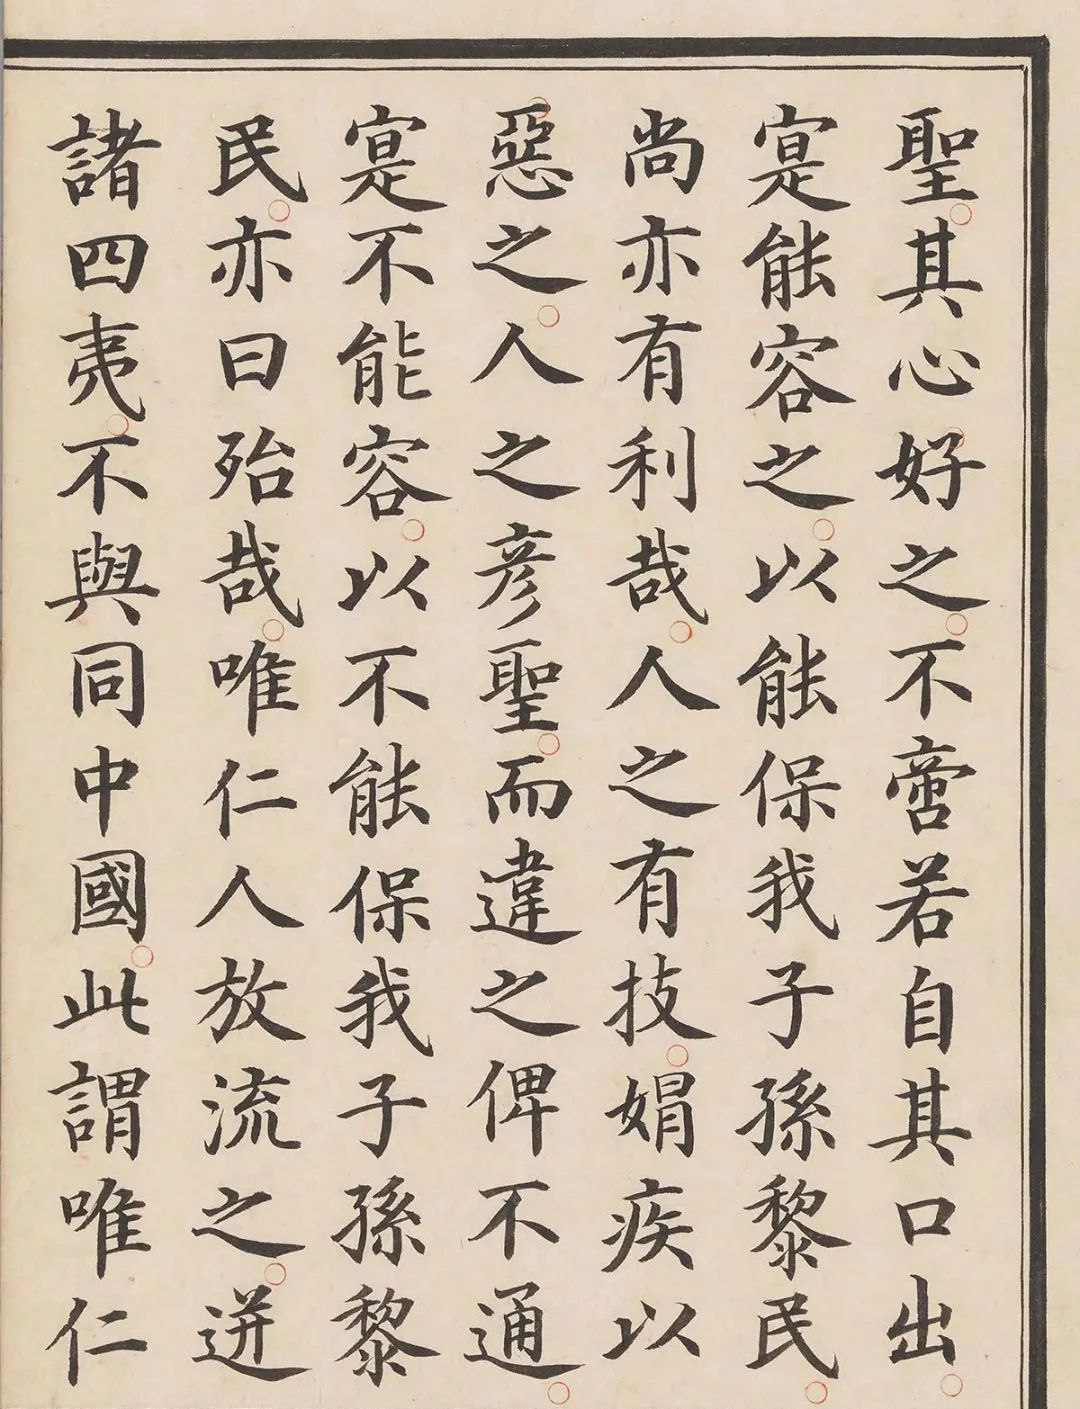 聖其心好之不啻若自其口出
寔能容之以能保我子孫黎民
尚亦有利哉人之有技媢疾以
惡之人之彥聖而違之俾不通
寔不能容以不能保我子孫黎
民亦曰殆哉唯仁人放流之迸
諸四夷不與同中國此謂唯仁